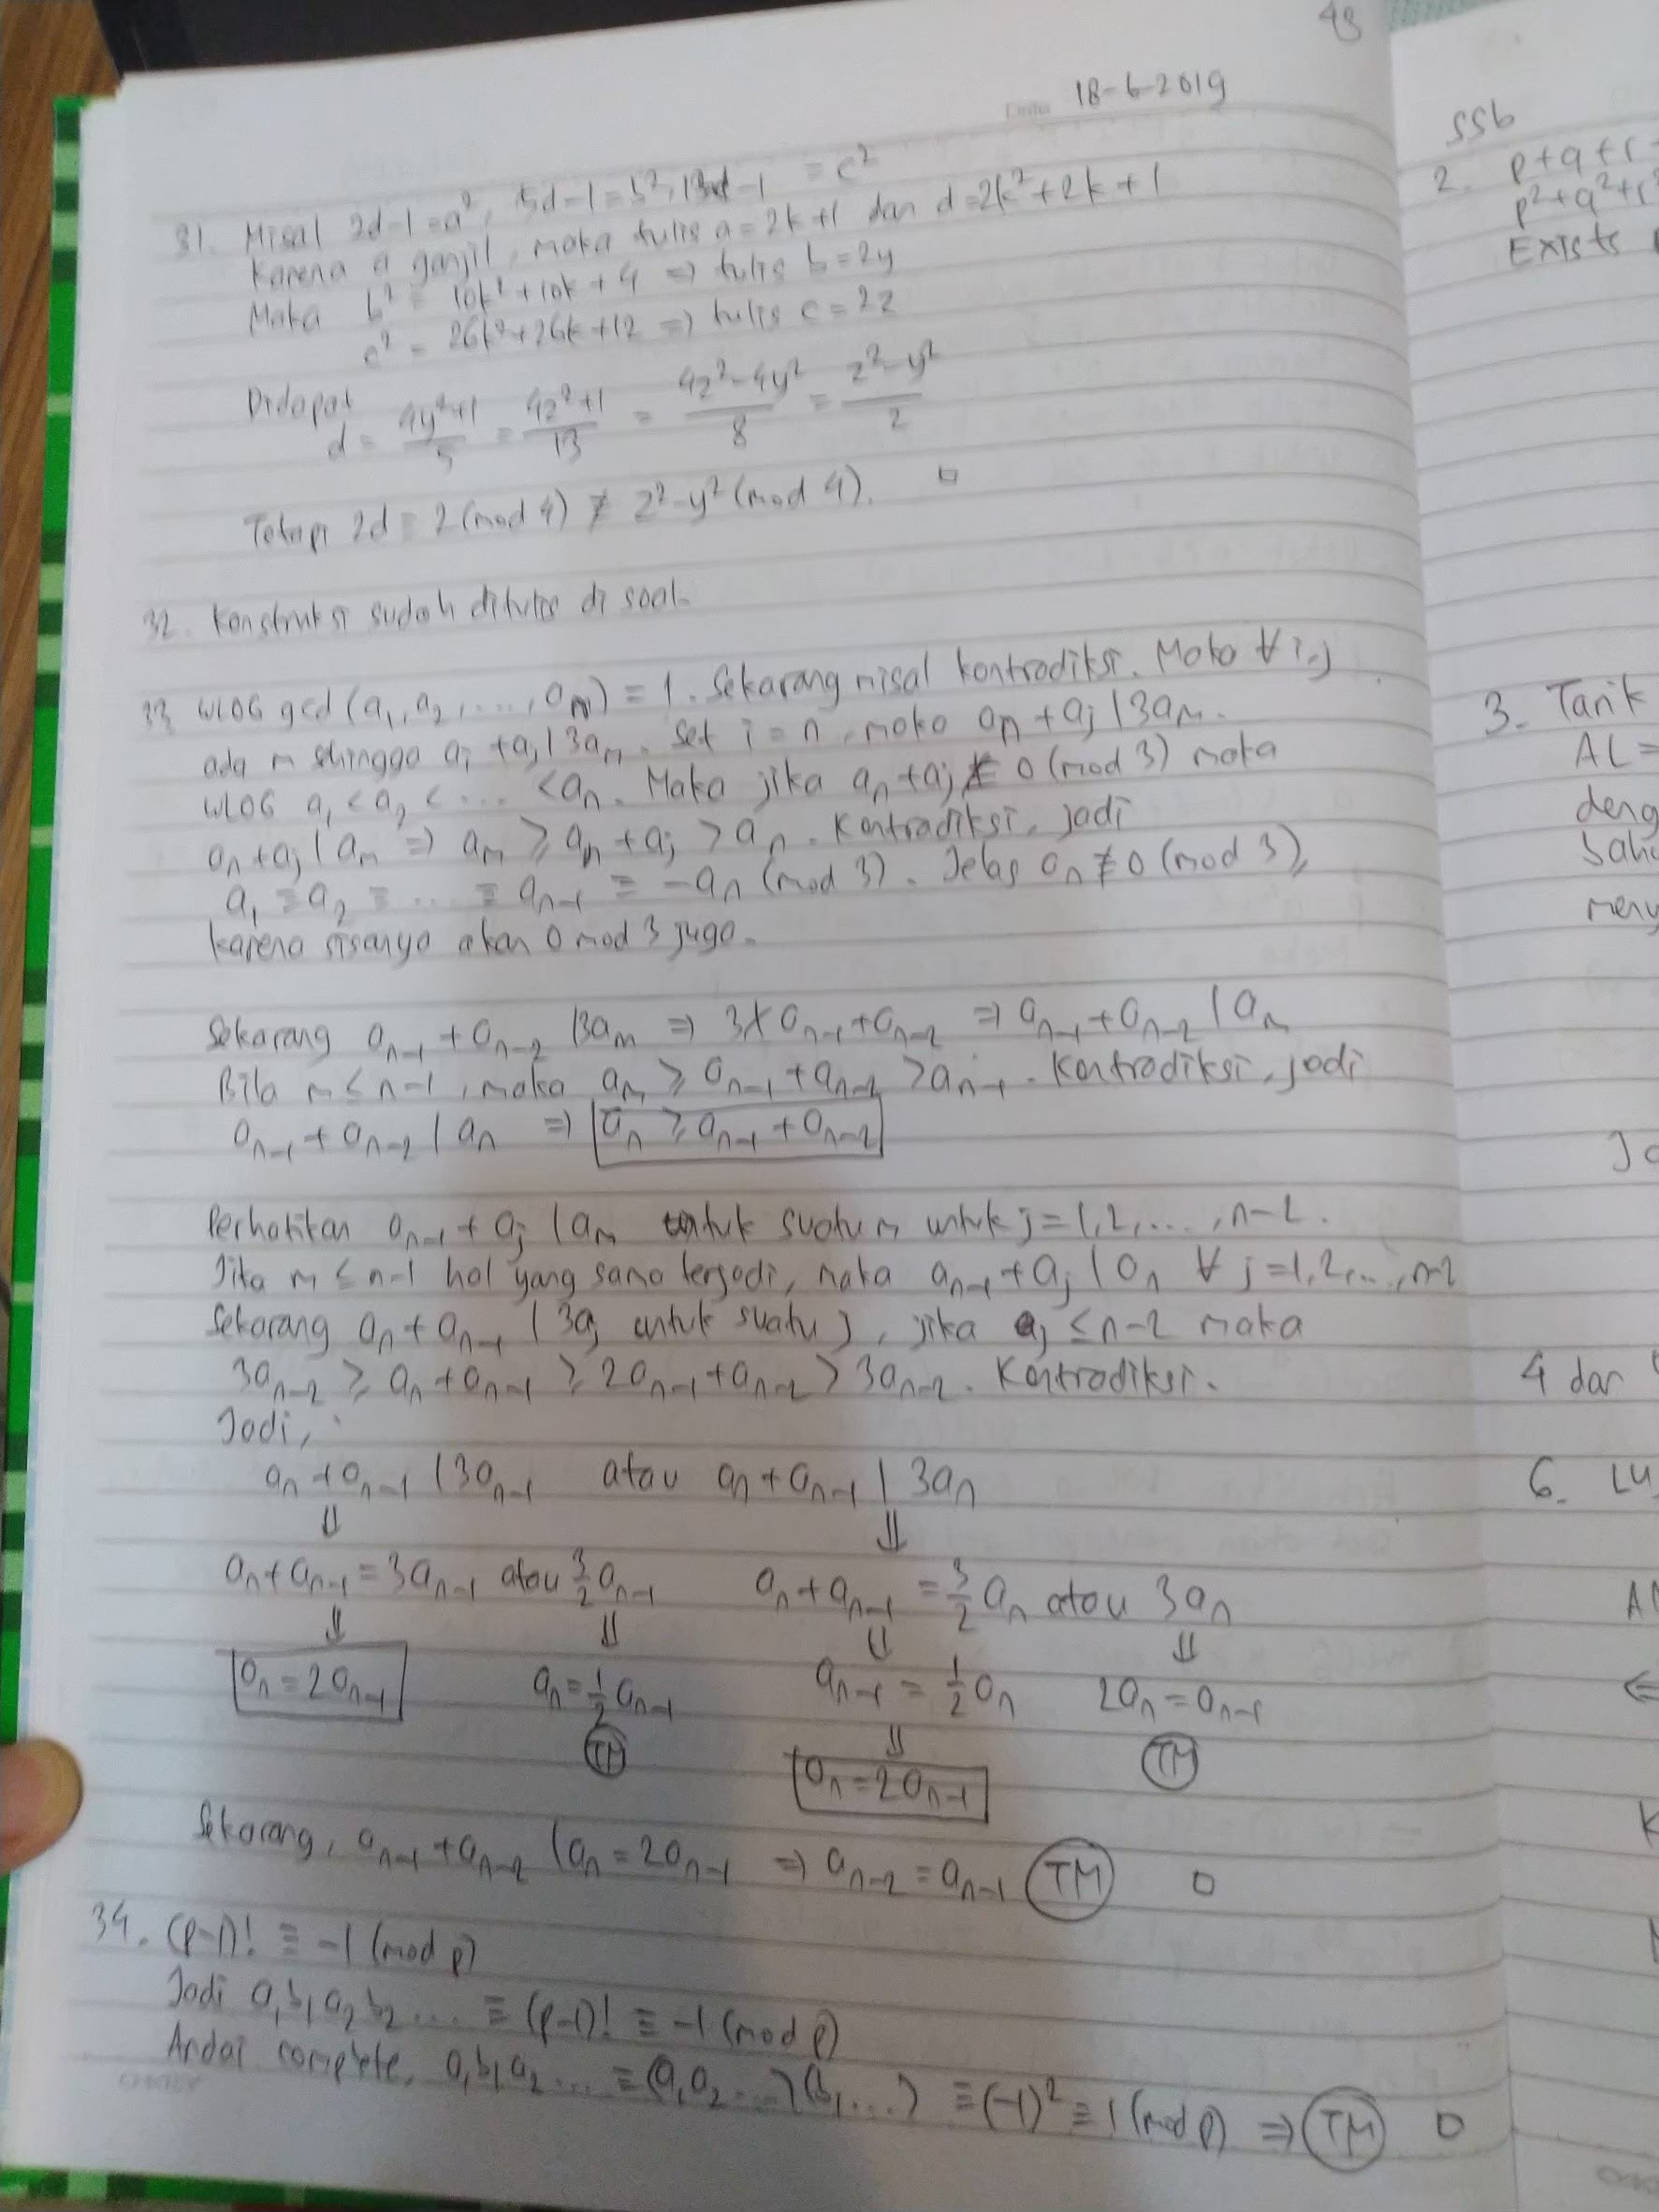 48
18-6-2019
31. Misal 2d-1=a², 5d-1=b², 13d-1 = c²
Karena a ganjil, maka tulis a=2k+1 dan d=2k²+2k+1
Maka b² = 10k²+10k+4 ⇒ tulis b=2y
c² = 26k²+26k+12 ⇒ tulis c=2z
Didapat
d = (4y²+1)/5 = (4z²+1)/13 = (4z²-4y²)/8 = (z²-y²)/2
Tetapi 2d ≡ 2 (mod 4) ≢ z²-y² (mod 4). □
32. Konstruksi sudah ditulis di soal.
33. WLOG gcd(a₁, a₂, ...., aₙ) = 1. Sekarang misal kontradiksi. Maka ∀ i,j
ada m sehingga aᵢ + aⱼ | 3aₘ. Set i = n, maka aₙ + aⱼ | 3aₘ.
WLOG a₁ < a₂ < ... < aₙ. Maka jika aₙ + aⱼ ≢ 0 (mod 3) maka
aₙ + aⱼ | aₘ ⇒ aₘ ≥ aₙ + aⱼ > aₙ. Kontradiksi, jadi
a₁ ≡ a₂ ≡ ... ≡ aₙ₋₁ ≡ -aₙ (mod 3). Jelas aₙ ≢ 0 (mod 3),
karena sisanya akan 0 mod 3 juga.
Sekarang aₙ₋₁ + aₙ₋₂ | 3aₘ ⇒ 3 ∤ aₙ₋₁ + aₙ₋₂ ⇒ aₙ₋₁ + aₙ₋₂ | aₘ
Bila m ≤ n-1, maka aₘ ≥ aₙ₋₁ + aₙ₋₂ > aₙ₋₁. Kontradiksi, jadi
aₙ₋₁ + aₙ₋₂ | aₙ ⇒ aₙ ≥ aₙ₋₁ + aₙ₋₂
Perhatikan aₙ₋₁ + aⱼ | aₘ untuk suatu m untuk j=1,2,...,n-2.
Jika m ≤ n-1 hal yang sama terjadi, maka aₙ₋₁ + aⱼ | aₙ ∀ j=1,2,...,n-2
Sekarang aₙ + aₙ₋₁ | 3aⱼ untuk suatu j, jika j ≤ n-2 maka
3aₙ₋₂ ≥ aₙ + aₙ₋₁ ≥ 2aₙ₋₁ + aₙ₋₂ > 3aₙ₋₂. Kontradiksi.
Jadi,
aₙ + aₙ₋₁ | 3aₙ₋₁ atau aₙ + aₙ₋₁ | 3aₙ
⇓ ⇓
aₙ + aₙ₋₁ = 3aₙ₋₁ atau 3/2 aₙ₋₁ aₙ + aₙ₋₁ = 3/2 aₙ atau 3aₙ
⇓ ⇓ ⇓ ⇓
aₙ = 2aₙ₋₁ aₙ = 1/2 aₙ₋₁ aₙ₋₁ = 1/2 aₙ 2aₙ = aₙ₋₁
TM ⇓ TM
aₙ = 2aₙ₋₁
Sekarang, aₙ₋₁ + aₙ₋₂ | aₙ = 2aₙ₋₁ ⇒ aₙ₋₂ = aₙ₋₁ TM □
34. (p-1)! ≡ -1 (mod p)
Jadi a₁b₁a₂b₂... ≡ (p-1)! ≡ -1 (mod p)
Andai complete, a₁b₁a₂... ≡ (a₁a₂...)(b₁...) ≡ (-1)² ≡ 1 (mod p) ⇒ TM □
SSb
2. p+q+r
p²+q²+r
Exists
3. Tarik
AL =
deng
4 dan
6.